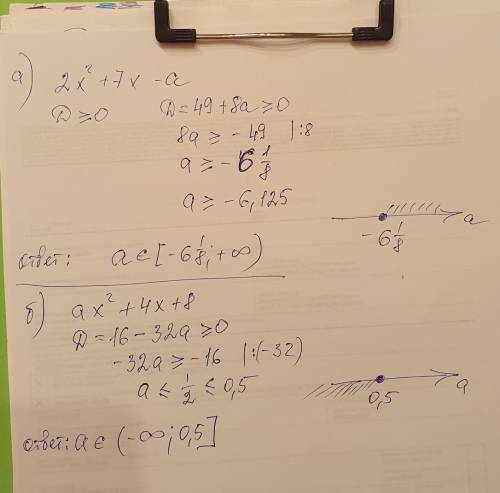 а) 2x² + 7x - a
D ≥ 0 D = 49 + 8a ≥ 0
8a ≥ - 49 |:8
a ≥ - 6 1/8
a ≥ - 6,125
- 6 1/8 a
ответ: a ∈ [- 6 1/8; + ∞)
б) ax² + 4x + 8
D = 16 - 32a ≥ 0
-32a ≥ -16 |:(-32)
a ≤ 1/2 ≤ 0,5
0,5 a
ответ: a ∈ (-∞; 0,5]